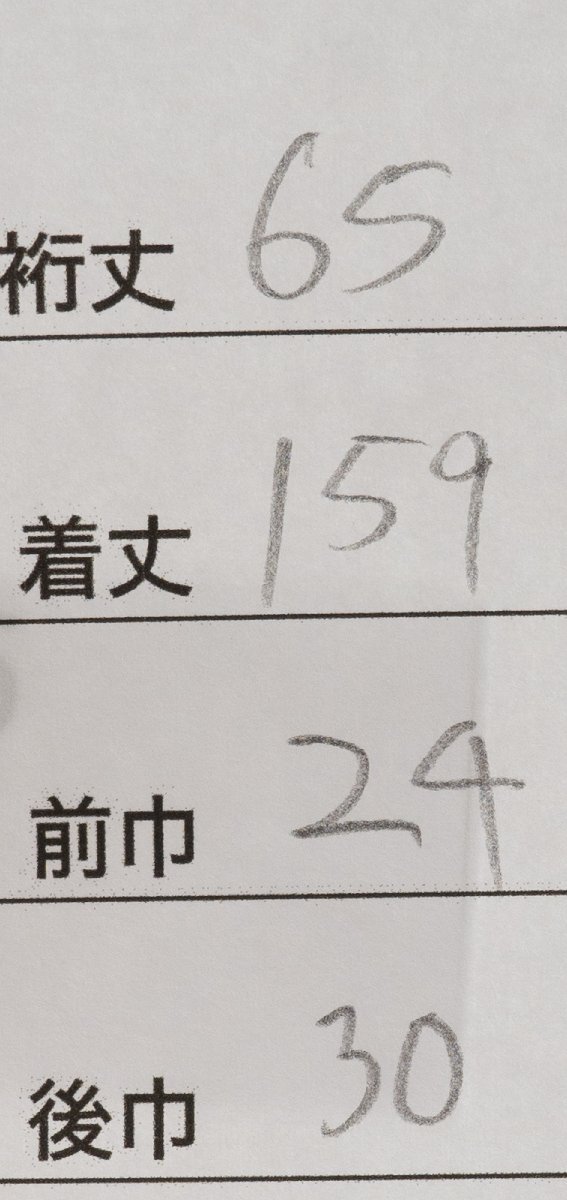 裄丈 65
着丈 159
前巾 24
後巾 30